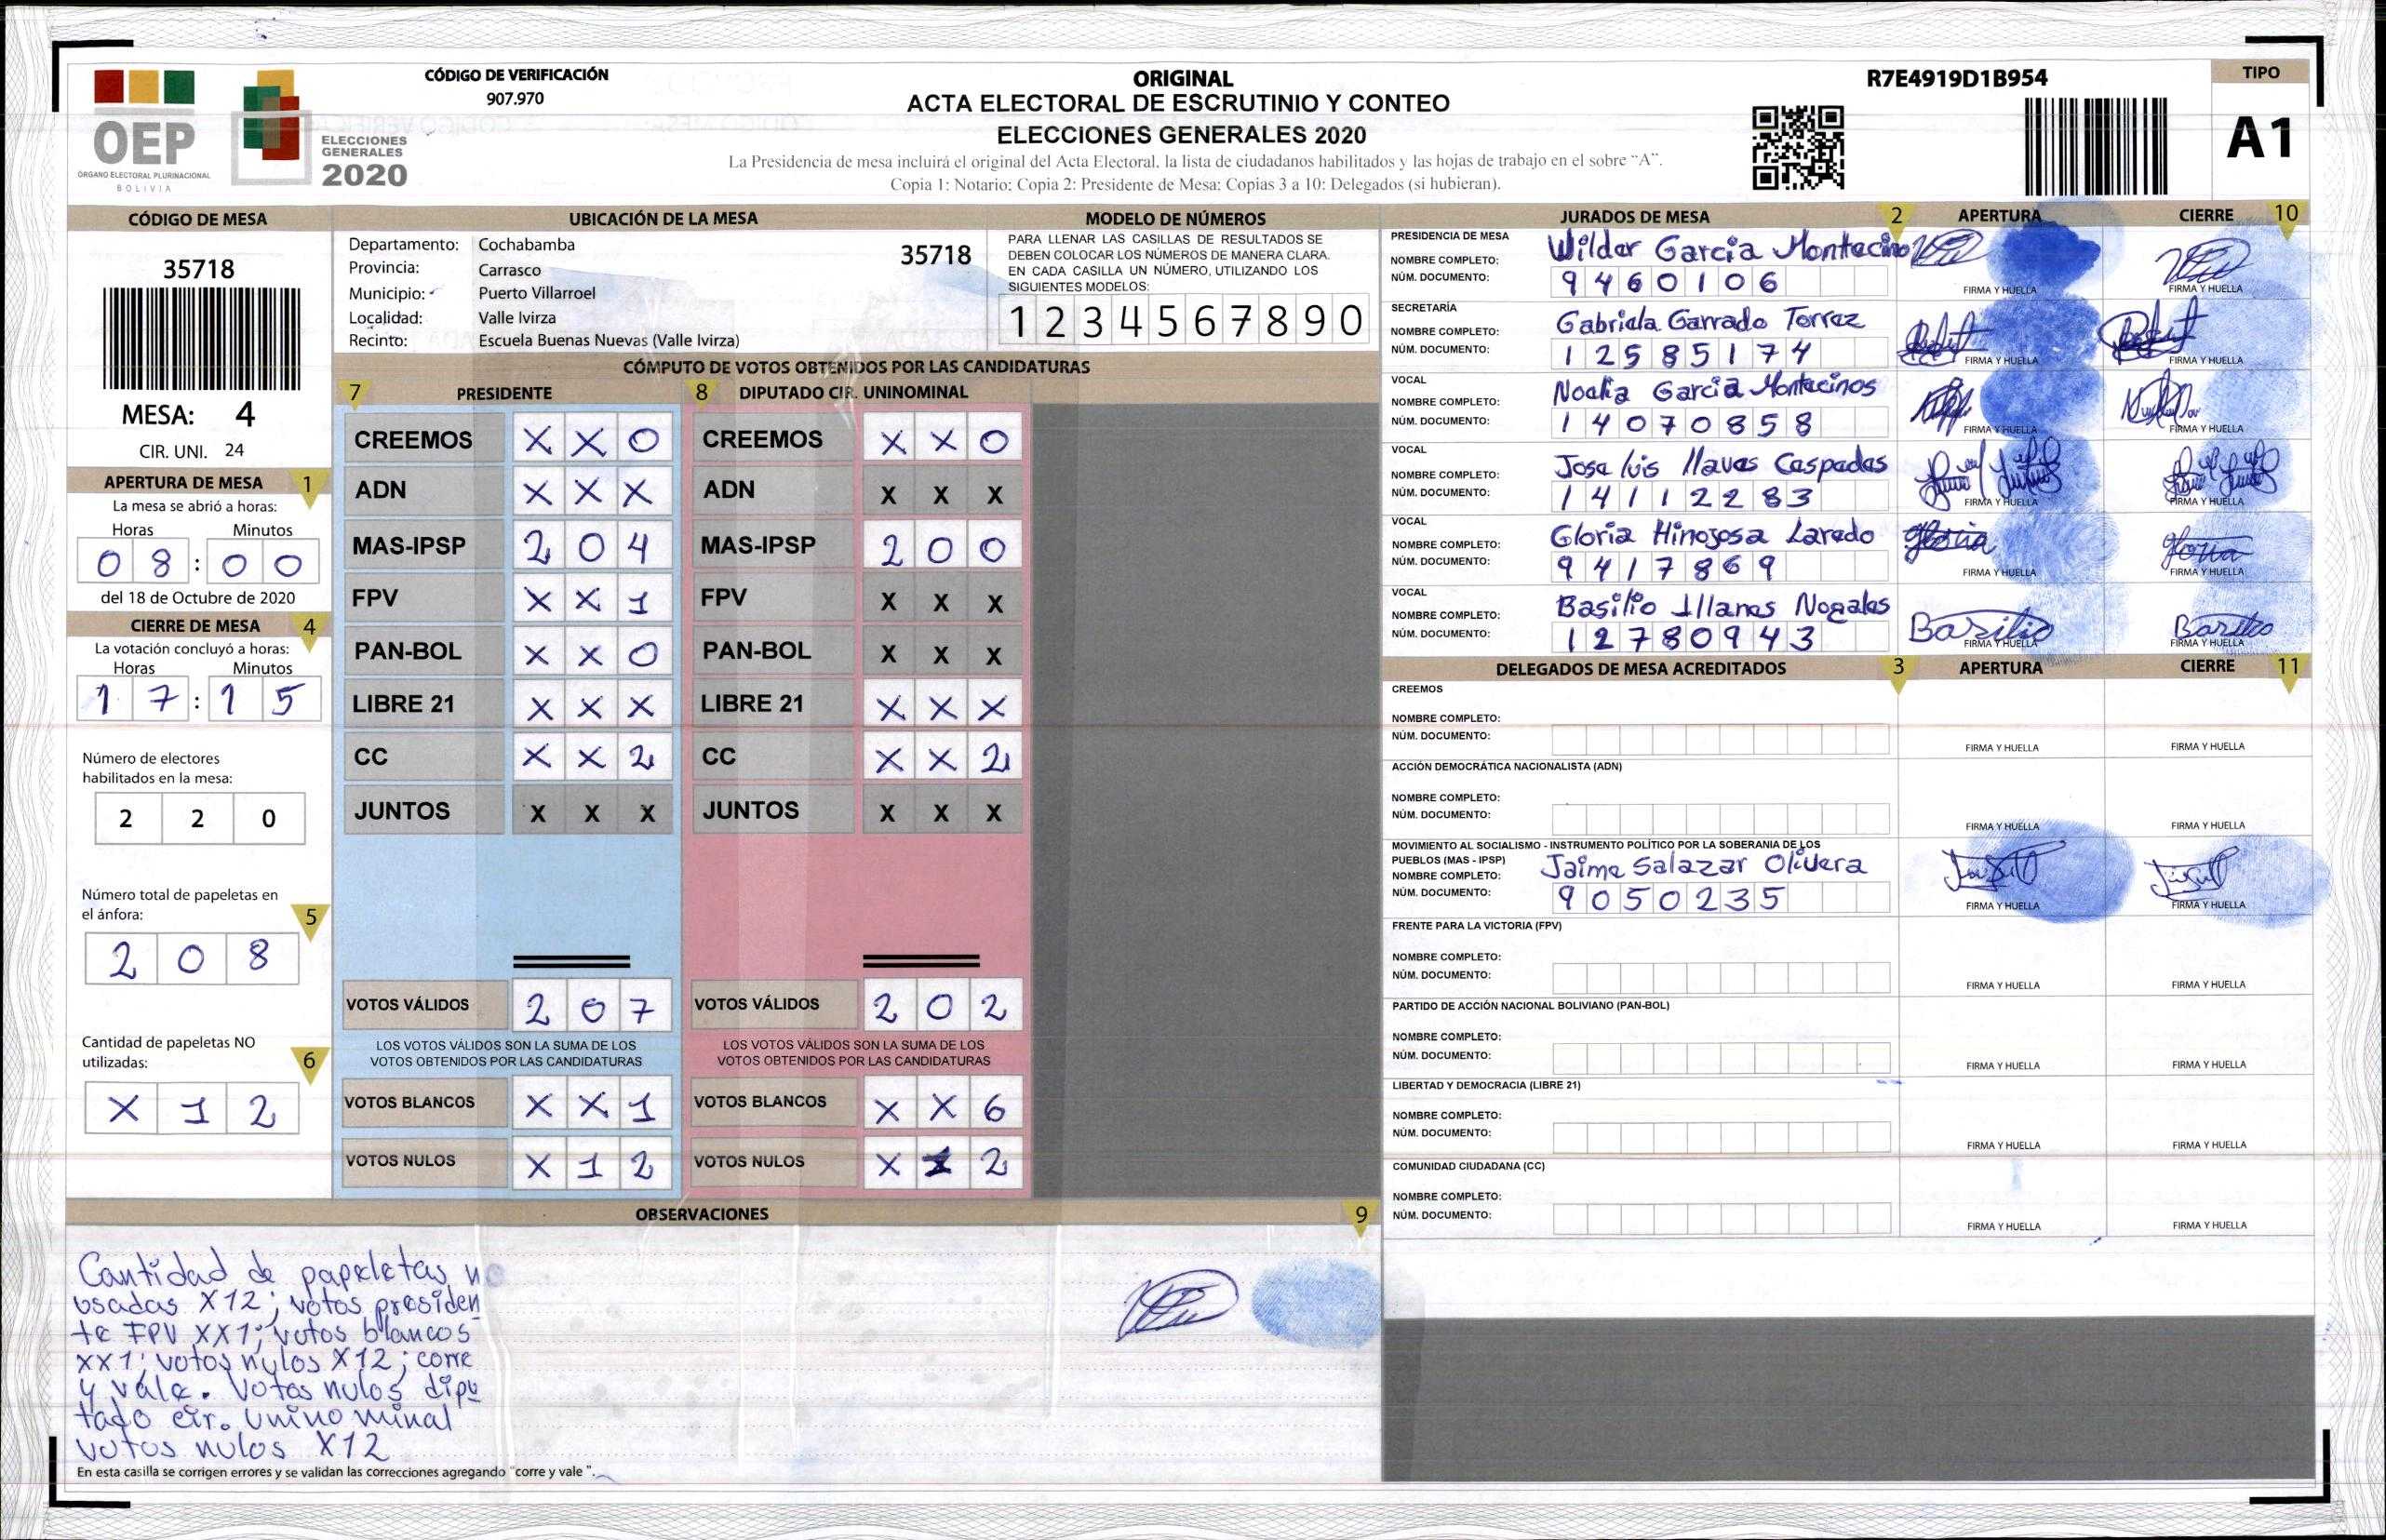 CÓDIGO DE VERIFICACIÓN
907.970
ORIGINAL
ACTA ELECTORAL DE ESCRUTINIO Y CONTEO
ELECCIONES GENERALES 2020
La Presidencia de mesa incluirá el original del Acta Electoral, la lista de ciudadanos habilitados y las hojas de trabajo en el sobre "A".
Copia 1: Notario: Copia 2: Presidente de Mesa: Copias 3 a 10: Delegados (si hubieran).
R7E4919D1B954
TIPO
A1
OEP
ÓRGANO ELECTORAL PLURINACIONAL
BOLIVIA
ELECCIONES
GENERALES
2020
CÓDIGO DE MESA
35718
MESA: 4
CIR. UNI. 24
APERTURA DE MESA 1
La mesa se abrió a horas:
Horas Minutos
0 8 : 0 0
del 18 de Octubre de 2020
CIERRE DE MESA 4
La votación concluyó a horas:
Horas Minutos
1 7 : 1 5
Número de electores
habilitados en la mesa:
2 2 0
Número total de papeletas en
el ánfora: 5
2 0 8
Cantidad de papeletas NO
utilizadas: 6
X 1 2
UBICACIÓN DE LA MESA
Departamento: Cochabamba 35718
Provincia: Carrasco
Municipio: Puerto Villarroel
Localidad: Valle Ivirza
Recinto: Escuela Buenas Nuevas (Valle Ivirza)
MODELO DE NÚMEROS
PARA LLENAR LAS CASILLAS DE RESULTADOS SE
DEBEN COLOCAR LOS NÚMEROS DE MANERA CLARA.
EN CADA CASILLA UN NÚMERO, UTILIZANDO LOS
SIGUIENTES MODELOS:
1 2 3 4 5 6 7 8 9 0
CÓMPUTO DE VOTOS OBTENIDOS POR LAS CANDIDATURAS
7 PRESIDENTE
CREEMOS X X 0
ADN X X X
MAS-IPSP 2 0 4
FPV X X 1
PAN-BOL X X 0
LIBRE 21 X X X
CC X X 2
JUNTOS X X X
VOTOS VÁLIDOS 2 0 7
LOS VOTOS VÁLIDOS SON LA SUMA DE LOS
VOTOS OBTENIDOS POR LAS CANDIDATURAS
VOTOS BLANCOS X X 1
VOTOS NULOS X 1 2
8 DIPUTADO CIR. UNINOMINAL
CREEMOS X X 0
ADN X X X
MAS-IPSP 2 0 0
FPV X X X
PAN-BOL X X X
LIBRE 21 X X X
CC X X 2
JUNTOS X X X
VOTOS VÁLIDOS 2 0 2
LOS VOTOS VÁLIDOS SON LA SUMA DE LOS
VOTOS OBTENIDOS POR LAS CANDIDATURAS
VOTOS BLANCOS X X 6
VOTOS NULOS X 2
OBSERVACIONES 9
Cantidad de papeletas no
usadas X12; votos presiden
te FPV XX1; votos blancos
XX1; votos nulos X12; corre
y vale. Votos nulos dipu
tado cir. uninominal
votos nulos X12
En esta casilla se corrigen errores y se validan las correcciones agregando "corre y vale ".
JURADOS DE MESA 2 APERTURA CIERRE 10
PRESIDENCIA DE MESA
NOMBRE COMPLETO: Wilder Garcia Montecino
NÚM. DOCUMENTO: 9460106
FIRMA Y HUELLA FIRMA Y HUELLA
SECRETARÍA
NOMBRE COMPLETO: Gabriela Garrado Torrez
NÚM. DOCUMENTO: 12585174
FIRMA Y HUELLA FIRMA Y HUELLA
VOCAL
NOMBRE COMPLETO: Noelia Garcia Montecinos
NÚM. DOCUMENTO: 14070858
FIRMA Y HUELLA FIRMA Y HUELLA
VOCAL
NOMBRE COMPLETO: Jose luis llaves Cespedes
NÚM. DOCUMENTO: 14112283
FIRMA Y HUELLA FIRMA Y HUELLA
VOCAL
NOMBRE COMPLETO: Gloria Hinojosa Laredo
NÚM. DOCUMENTO: 9417869
Gloria Gloria
FIRMA Y HUELLA FIRMA Y HUELLA
VOCAL
NOMBRE COMPLETO: Basilio Illanes Nogales
NÚM. DOCUMENTO: 12780943
Basilio Basilio
FIRMA Y HUELLA FIRMA Y HUELLA
DELEGADOS DE MESA ACREDITADOS 3 APERTURA CIERRE 11
CREEMOS
NOMBRE COMPLETO:
NÚM. DOCUMENTO:
FIRMA Y HUELLA FIRMA Y HUELLA
ACCIÓN DEMOCRÁTICA NACIONALISTA (ADN)
NOMBRE COMPLETO:
NÚM. DOCUMENTO:
FIRMA Y HUELLA FIRMA Y HUELLA
MOVIMIENTO AL SOCIALISMO - INSTRUMENTO POLÍTICO POR LA SOBERANIA DE LOS
PUEBLOS (MAS - IPSP)
NOMBRE COMPLETO: Jaime Salazar Olivera
NÚM. DOCUMENTO: 9050235
FIRMA Y HUELLA FIRMA Y HUELLA
FRENTE PARA LA VICTORIA (FPV)
NOMBRE COMPLETO:
NÚM. DOCUMENTO:
FIRMA Y HUELLA FIRMA Y HUELLA
PARTIDO DE ACCIÓN NACIONAL BOLIVIANO (PAN-BOL)
NOMBRE COMPLETO:
NÚM. DOCUMENTO:
FIRMA Y HUELLA FIRMA Y HUELLA
LIBERTAD Y DEMOCRACIA (LIBRE 21)
NOMBRE COMPLETO:
NÚM. DOCUMENTO:
FIRMA Y HUELLA FIRMA Y HUELLA
COMUNIDAD CIUDADANA (CC)
NOMBRE COMPLETO:
NÚM. DOCUMENTO:
FIRMA Y HUELLA FIRMA Y HUELLA